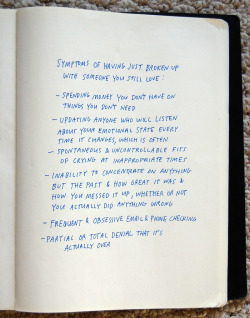 SYMPTOMS OF HAVING JUST BROKEN UP
WITH SOMEONE YOU STILL LOVE:
- SPENDING MONEY YOU DON'T HAVE ON
THINGS YOU DON'T NEED
- UPDATING ANYONE WHO WILL LISTEN
ABOUT YOUR EMOTIONAL STATE EVERY
TIME IT CHANGES, WHICH IS OFTEN
- SPONTANEOUS & UNCONTROLLABLE FITS
OF CRYING AT INAPPROPRIATE TIMES
- INABILITY TO CONCENTRATE ON ANYTHING
BUT THE PAST & HOW GREAT IT WAS &
HOW YOU MESSED IT UP, WHETHER OR NOT
YOU ACTUALLY DID ANYTHING WRONG
- FREQUENT & OBSESSIVE EMAIL & PHONE CHECKING
- PARTIAL OR TOTAL DENIAL THAT IT'S
ACTUALLY OVER